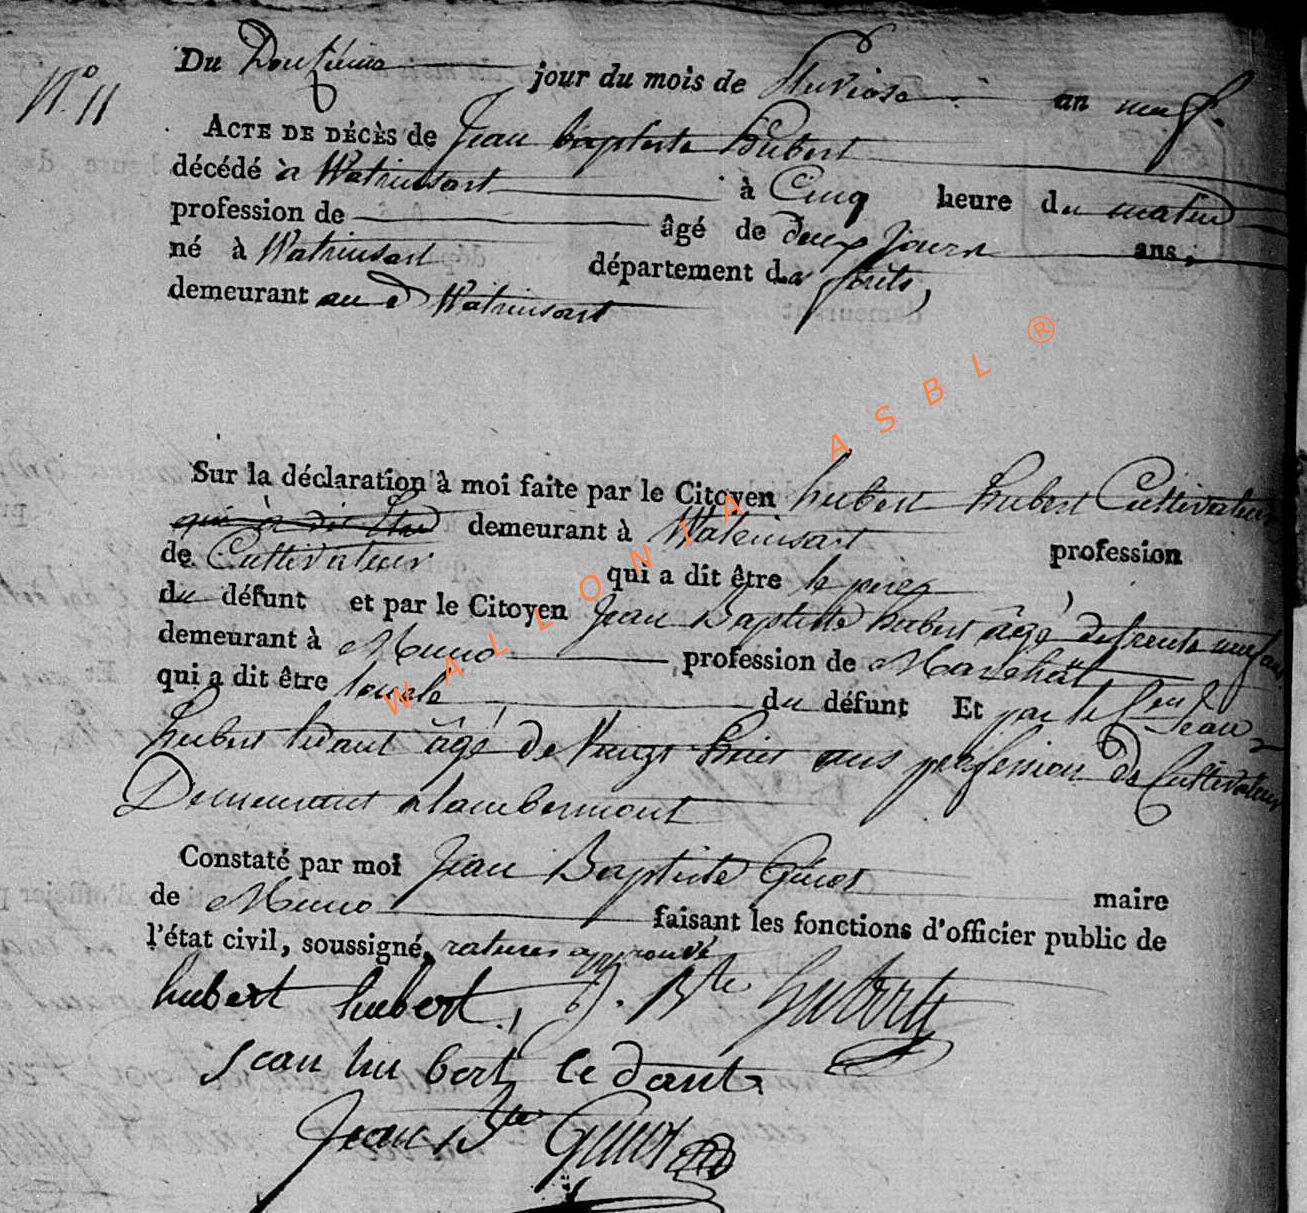 N.° 11
Du Douzieme jour du mois de Pluviose an neuf.
ACTE DE DÉCÈS de Jean baptiste hubert
décédé à Watrinsart à Cinq heure du matin
profession de âgé de deux jours ans,
né à Watrinsart département des forêts,
demeurant au d Watrinsart
Sur la déclaration à moi faite par le Citoyen hubert hubert Cultivateur
qui a dit être demeurant à Watrinsart profession
de Cultivateur qui a dit être le pere,
du défunt et par le Citoyen Jean Baptiste hubert âgé de trente neuf ans
demeurant à Muno profession de Marechal
qui a dit être loncle du défunt Et par le Cen Jean
hubert ledant âgé de Vingt huit ans profession de Cultivateur
Demeurant a lambermont
Constaté par moi Jean Baptiste Guiot maire
de Muno faisant les fonctions d'officier public de
l'état civil, soussigné, ratures approuvé
hubert hubert, J. Bte hubert
Jean hubert ledant
Jean Bte Guiot
WALLONIA ASBL ®